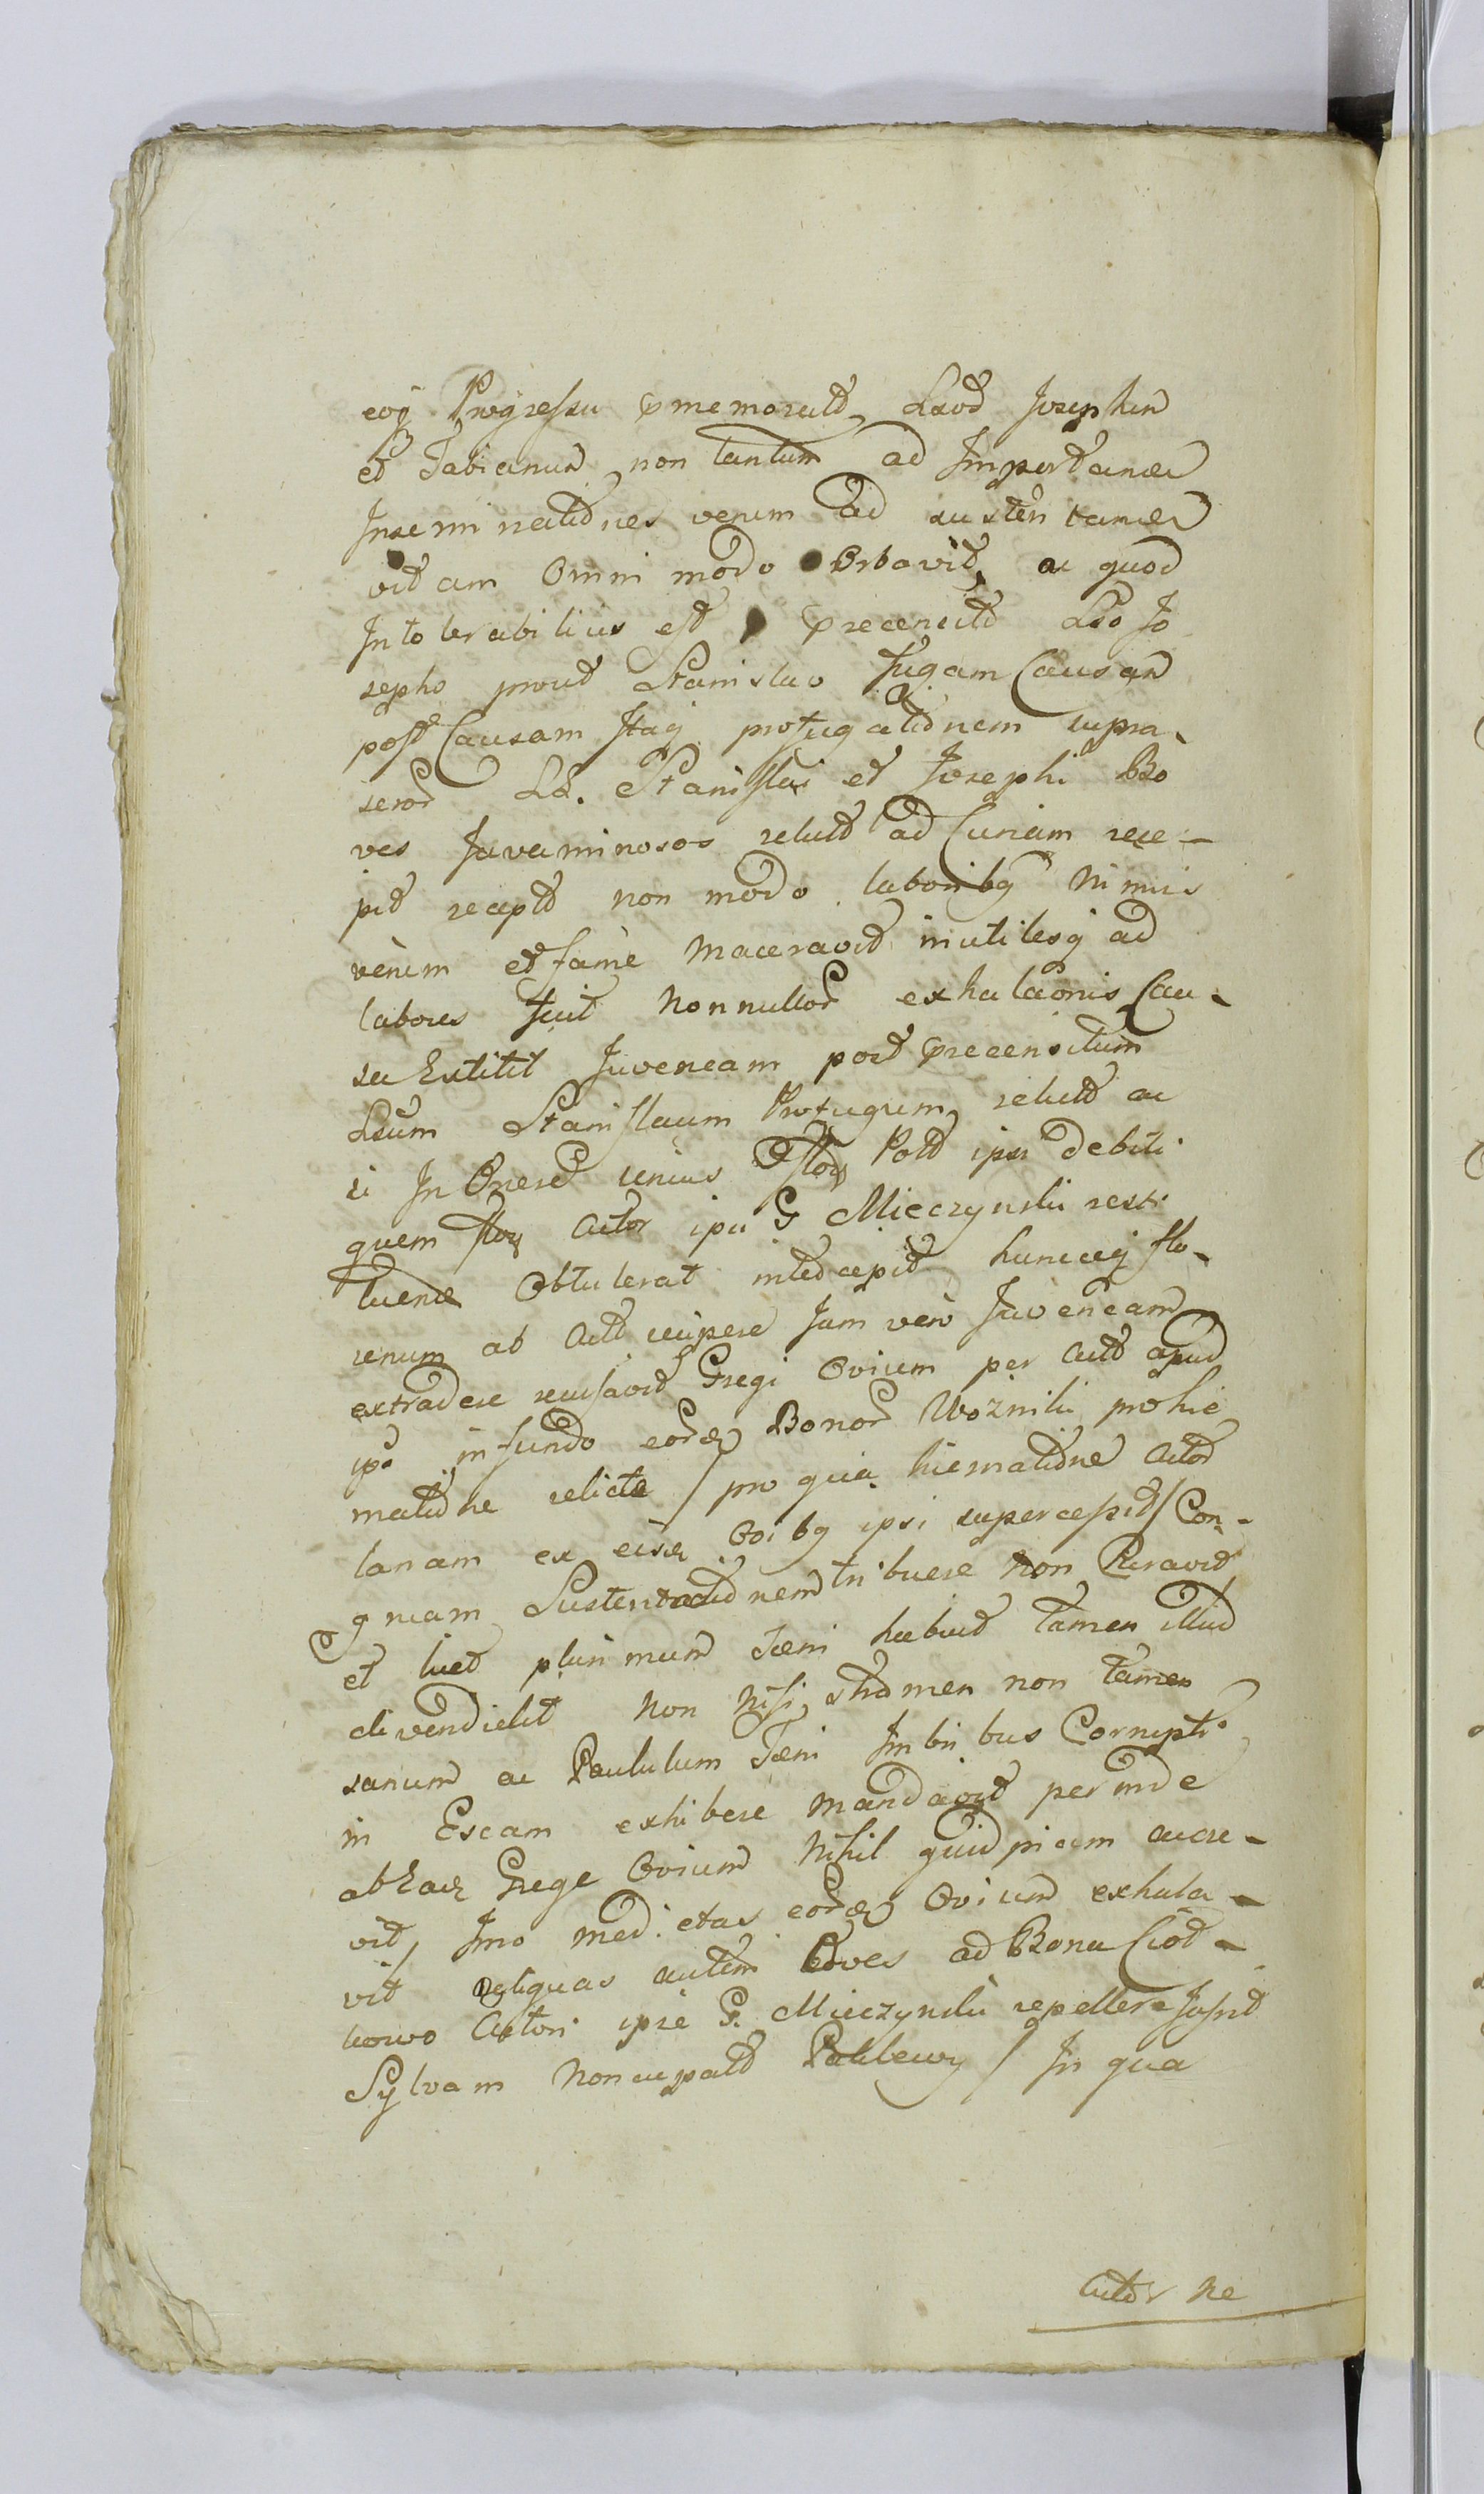 eoq Progressu prememorat Lsos Josephum
et Fabianum non tantum ad Impertanda
Inseminationes verum ad sustentanda
vitam Omni modo Orbavit, ac quod
Intolerabilius est precensit Lso Jo
sepho prout Stanislao fugam Causan
post Causam Itaq profugationem supra
scrod LL. Stanislai et Josephi Bo
ves Juvaminosos relut ad Curiam rece-
pit recept non modo laboribq nimis
verum et fame maceravit inutilesq ad
labores fecit Nonnullor exhalaonis Cau-
sa Extitit Juvencam post precensitum
Lsum Stanislaum Profugum, relut ac
si In Onere unius flor Pol ipsi debiti
quem flor Actor ipsi G Mieczynski resti
tuend Obtulerat intercepit huncq flo-
renum ab Act recipere Jam vero Juvencam
extradere recusavit Gregi Ovium per Act apud
ips in fundo eord Bonor Wozniki pro hie
matione relicta / pro qua hiematione Actor
lanam ex eisd Ovibq ipsi supercessit / Con-
gruam Sustentationem tribuere non Curavit
et licet plurimum Foeni habuit tamen illud
divendidit Non nisi stramen non tamen
sanum ac Paululum Foeni Imbribus Corrupti
in Escam exhibere mandavit perinde
ab hac Grege Ovium Nihil quidpiam accre-
vit, Imo medietas eord Ovium exhala-
vit Reliquas autem Oves ad Bona Ciot-
kowo Actori ipse G. Mieczynski repellere Jussit
Sylvam Noncupat / In qua
Actor ne